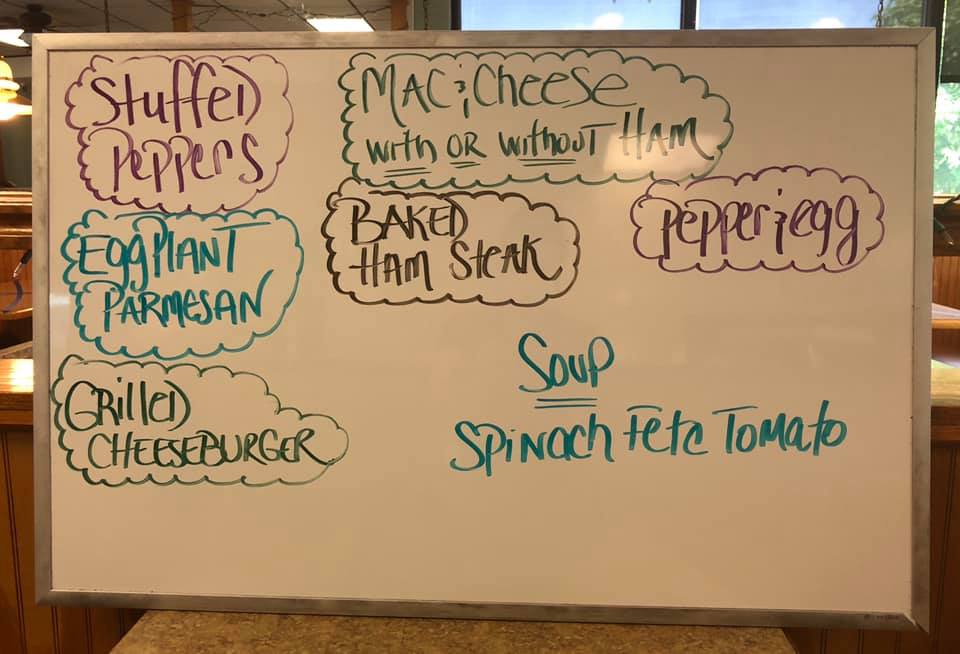 Stuffed
Peppers
Mac & Cheese
with or without Ham
Baked
Ham Steak
Pepper & egg
Eggplant
Parmesan
Grilled
Cheeseburger
Soup
Spinach Feta Tomato